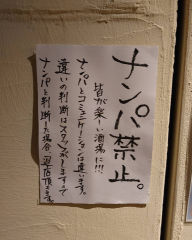 ナンパ禁止。
皆が楽しい酒場に!!!
ナンパとコミュニケーションは違います。
違いの判断はスタッフがしますので
ナンパと判断した場合、退店頂きます。